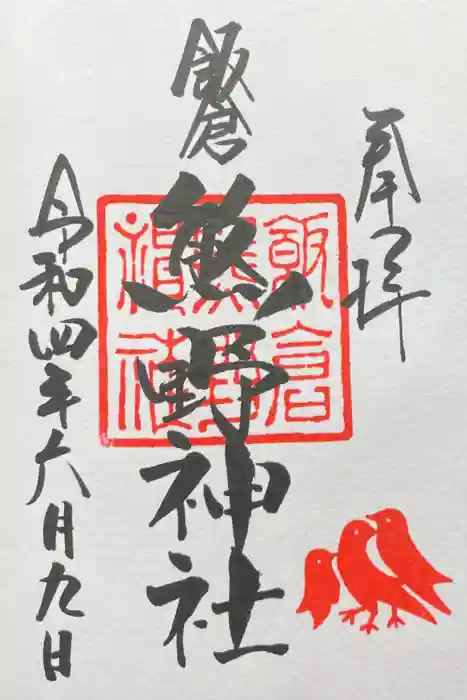 奉拝
飯倉
熊野神社
飯倉熊野神社
令和四年六月九日